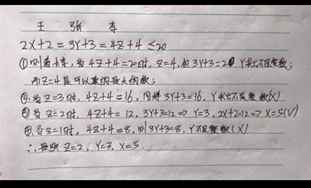 王 张 李
2X+2=3Y+3=4Z+4≤20
①则看小李,当4Z+4=20时,Z=4,但3Y+3=20 Y求出不是整数;
而Z=4是可以取的最大的数;
②当Z=3时,4Z+4=16,同样3Y+3=16,Y求出不是整数(X)
③当Z=2时,4Z+4=12,3Y+3=12⇒Y=3,2X+2=12⇒X=5(√)
④当Z=1时,4Z+4=8,则3Y+3=8,Y不是整数(X)
∴ Z=2,Y=3,X=5